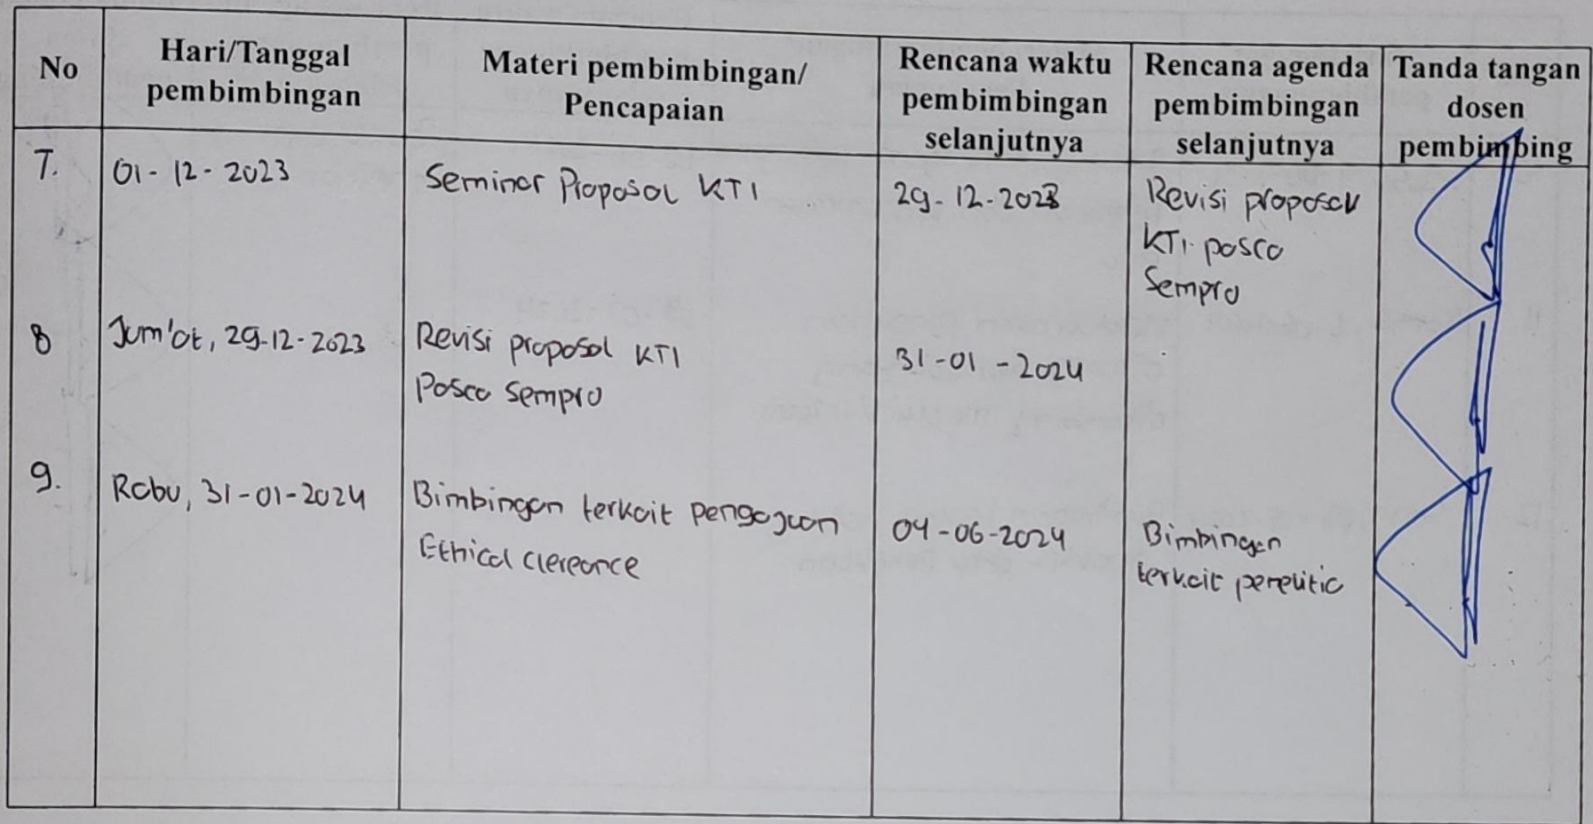 No
Hari/Tanggal
pembimbingan
Materi pembimbingan/
Pencapaian
Rencana waktu
pembimbingan
selanjutnya
Rencana agenda
pembimbingan
selanjutnya
Tanda tangan
dosen
pembimbing
7.
01-12-2023
Seminar Proposal KTI
29-12-2023
Revisi proposal
KTI pasca
Sempro
8
Jum'at, 29-12-2023
Revisi proposal KTI
Pasca Sempro
31-01-2024
9.
Rabu, 31-01-2024
Bimbingan terkait pengajuan
Ethical clereance
04-06-2024
Bimbingan
terkait